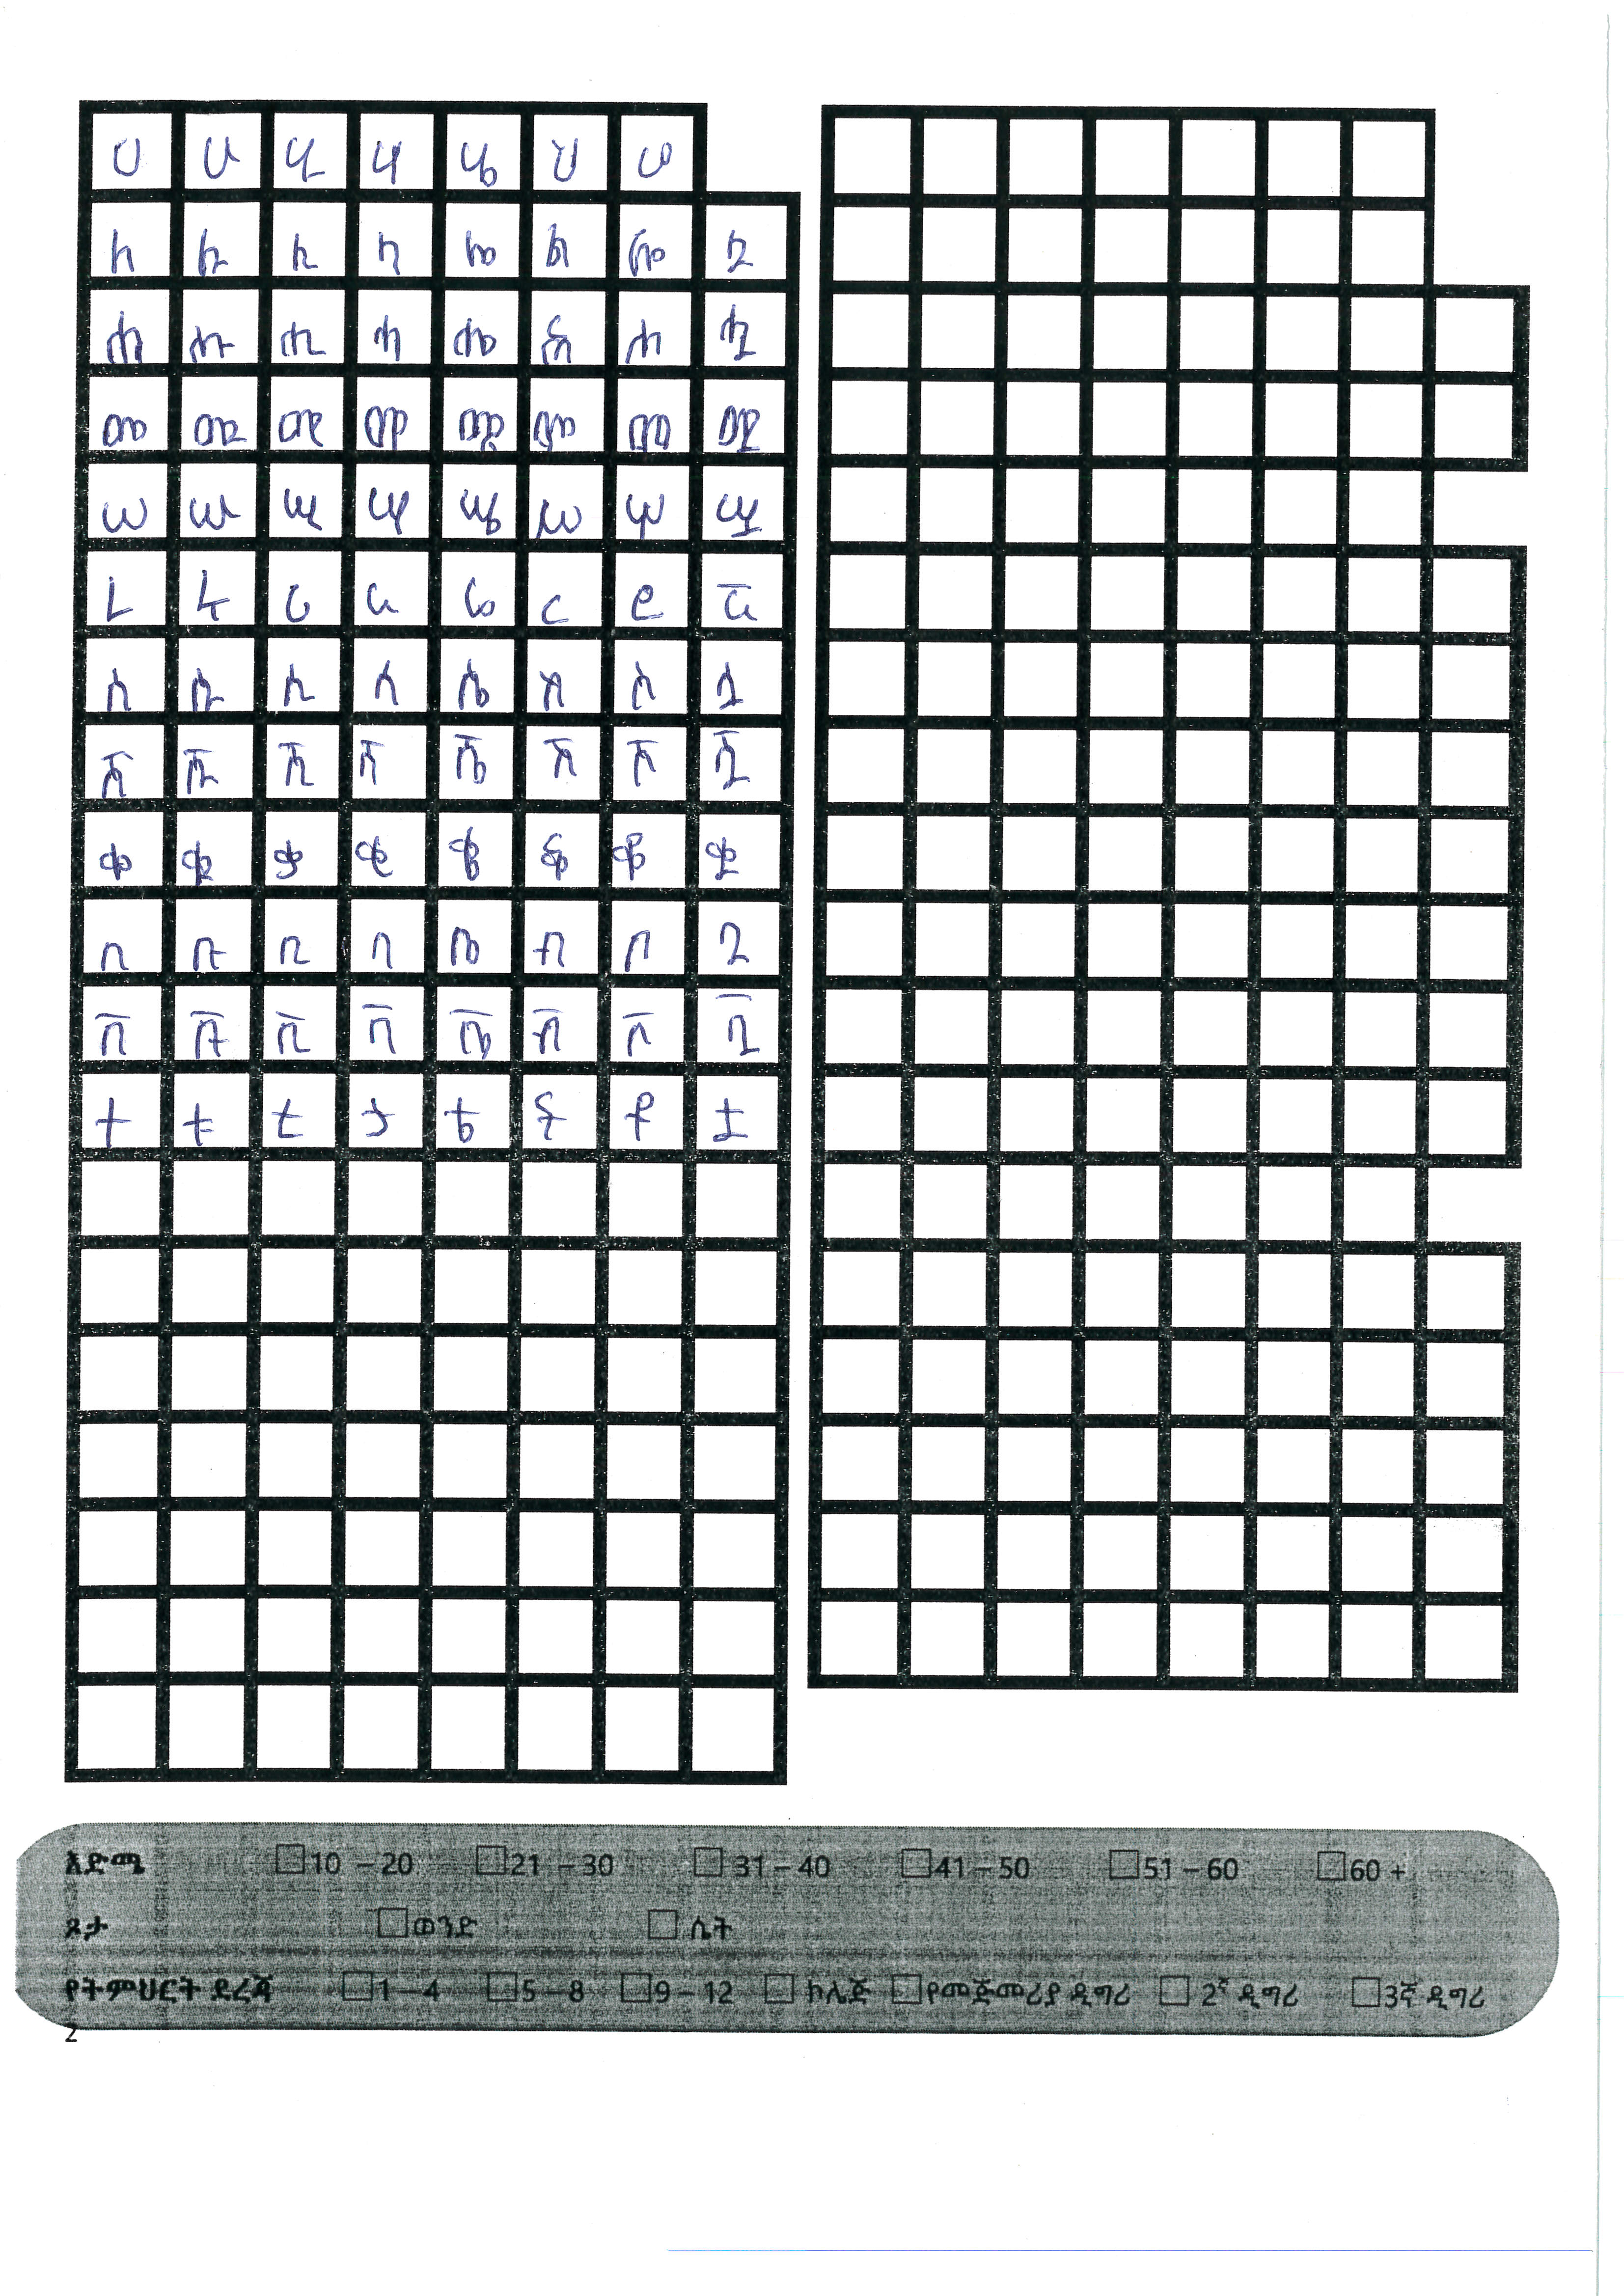 ሀ ሁ ሂ ሃ ሄ ህ ሆ
ለ ሉ ሊ ላ ሌ ል ሎ ሏ
ሐ ሑ ሒ ሓ ሔ ሕ ሖ ሗ
መ ሙ ሚ ማ ሜ ም ሞ ሟ
ሠ ሡ ሢ ሣ ሤ ሥ ሦ ሧ
ረ ሩ ሪ ራ ሬ ር ሮ ሯ
ሰ ሱ ሲ ሳ ሴ ስ ሶ ሷ
ሸ ሹ ሺ ሻ ሼ ሽ ሾ ሿ
ቀ ቁ ቂ ቃ ቄ ቅ ቆ ቋ
በ ቡ ቢ ባ ቤ ብ ቦ ቧ
ቨ ቩ ቪ ቫ ቬ ቭ ቮ ቯ
ተ ቱ ቲ ታ ቴ ት ቶ ቷ
እድሜ 10 – 20 21 – 30 31 – 40 41 – 50 51 – 60 60 +
ጾታ ወንድ ሴት
የትምህርት ደረጃ 1 – 4 5 – 8 9 – 12 ኮሌጅ የመጀመሪያ ዲግሪ 2ኛ ዲግሪ 3ኛ ዲግሪ
2